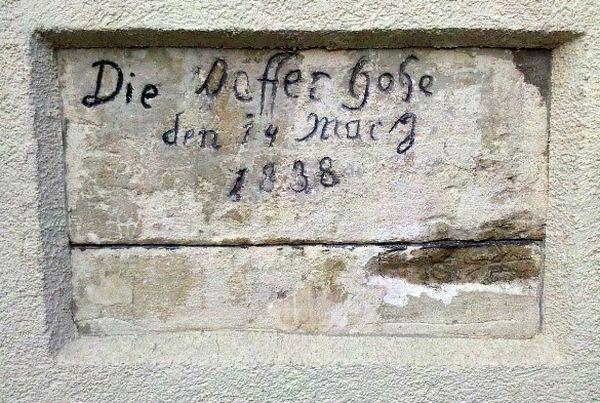 Die Waffer Hohe
den 14 Marz
1838